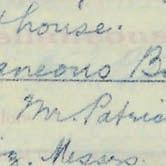 house.
aneous B
Mr. Patric
Messrs